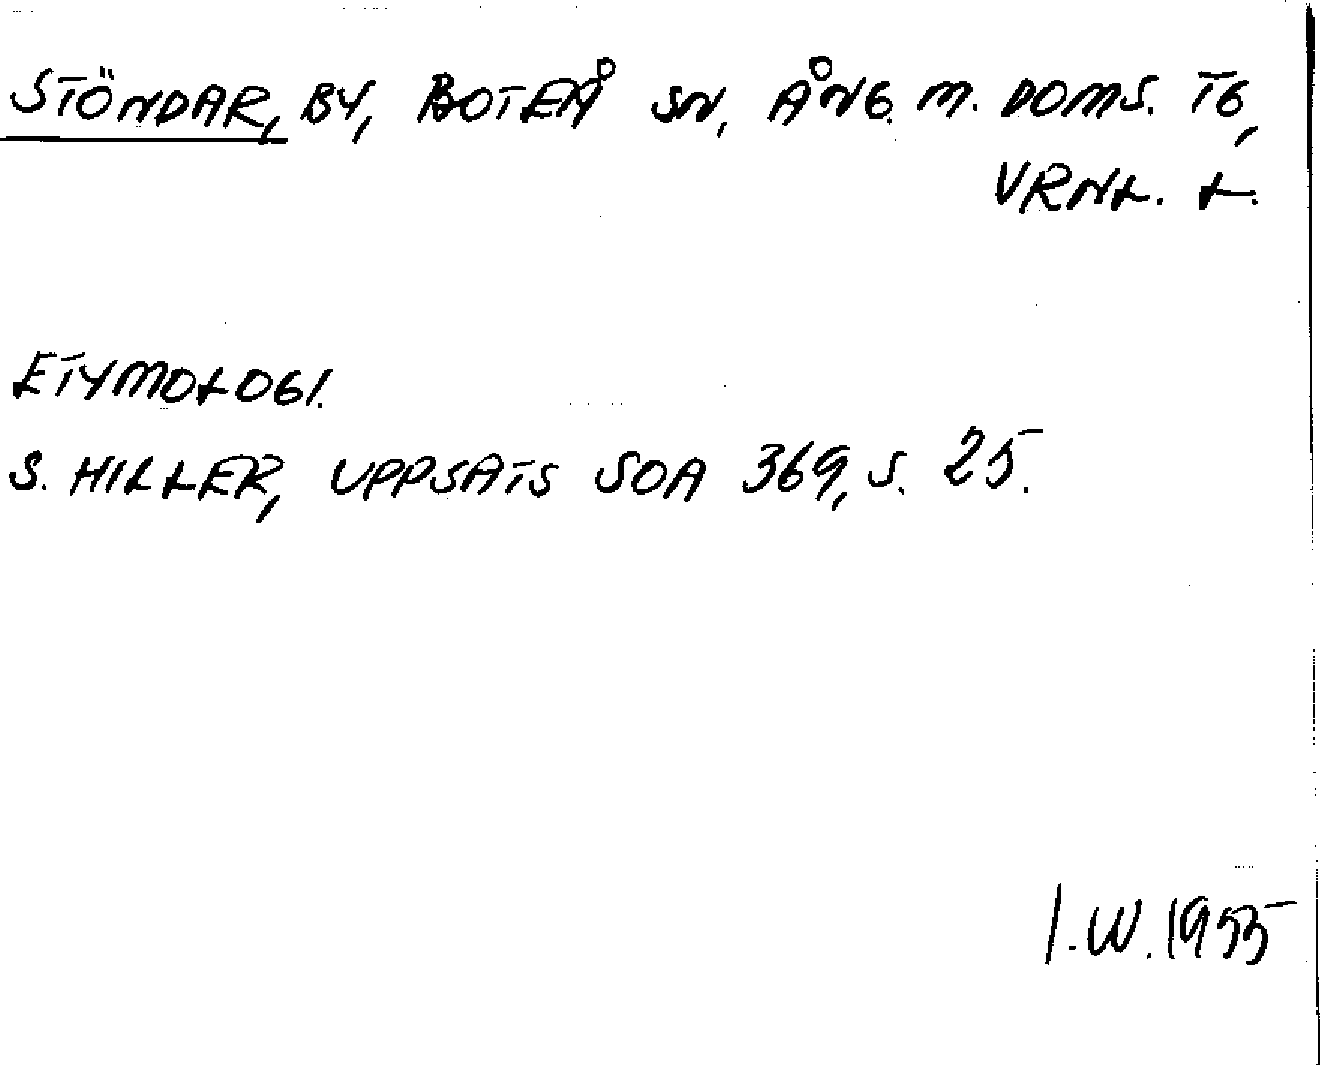 STÖNDAR, BY, BOTEÅ SN, ÅNG. M. DOMS. TG,
VRNL. L.
ETYMOLOGI.
S. HILLER, UPPSATS SOA 369, S. 25.
I.W. 1955